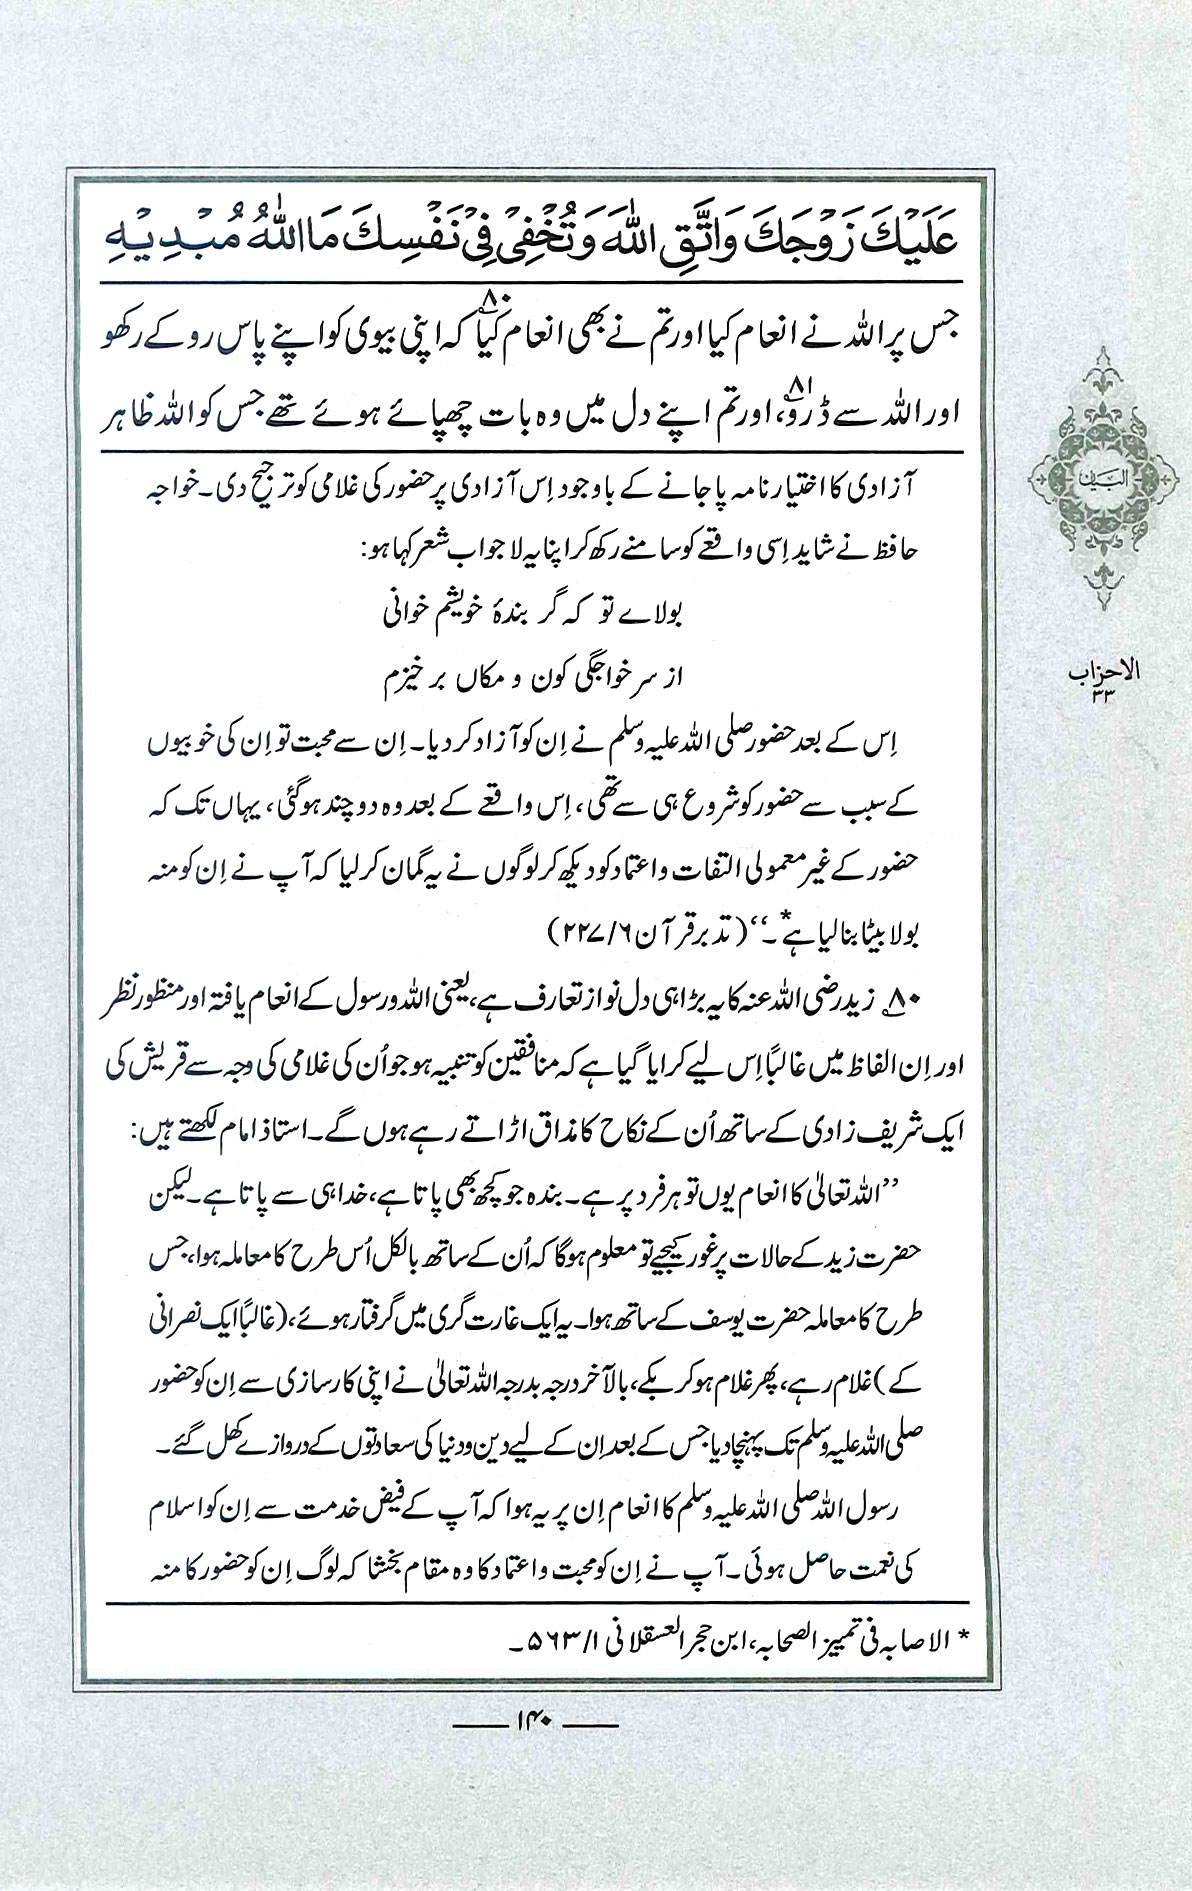 عَلَيْكَ زَوْجَكَ وَاتَّقِ اللّٰهَ وَتُخْفِيْ فِيْ نَفْسِكَ مَا اللّٰهُ مُبْدِيْهِ
جس پر اللہ نے انعام کیا اور تم نے بھی انعام کیا۸۰ کہ اپنی بیوی کو اپنے پاس روکے رکھو
اور اللہ سے ڈرو۸۱، اور تم اپنے دل میں وہ بات چھپائے ہوئے تھے جس کو اللہ ظاہر
آزادی کا اختیار نامہ پا جانے کے باوجود اِس آزادی پر حضور کی غلامی کو ترجیح دی۔ خواجہ
حافظ نے شاید اِسی واقعے کو سامنے رکھ کر اپنا یہ لاجواب شعر کہا ہو:
بولاے تو کہ گر بندۂ خویشم خوانی
از سر خواجگی کون و مکاں بر خیزم
اِس کے بعد حضور صلی اللہ علیہ وسلم نے اِن کو آزاد کر دیا۔ اِن سے محبت تو اِن کی خوبیوں
کے سبب سے حضور کو شروع ہی سے تھی، اِس واقعے کے بعد وہ دو چند ہوگئی، یہاں تک کہ
حضور کے غیر معمولی التفات و اعتماد کو دیکھ کر لوگوں نے یہ گمان کر لیا کہ آپ نے اِن کو منہ
بولا بیٹا بنا لیا ہے*۔‘‘ (تدبر قرآن ۶/ ۲۲۷)
۸۰ زید رضی اللہ عنہ کا یہ بڑا ہی دل نواز تعارف ہے، یعنی اللہ و رسول کے انعام یافتہ اور منظور نظر
اور اِن الفاظ میں غالباً اِس لیے کرایا گیا ہے کہ منافقین کو تنبیہ ہو جو اُن کی غلامی کی وجہ سے قریش کی
ایک شریف زادی کے ساتھ اُن کے نکاح کا مذاق اڑاتے رہے ہوں گے۔ استاذ امام لکھتے ہیں:
’’اللہ تعالیٰ کا انعام یوں تو ہر فرد پر ہے۔ بندہ جو کچھ بھی پاتا ہے، خدا ہی سے پاتا ہے۔ لیکن
حضرت زید کے حالات پر غور کیجیے تو معلوم ہو گا کہ اُن کے ساتھ بالکل اُس طرح کا معاملہ ہوا، جس
طرح کا معاملہ حضرت یوسف کے ساتھ ہوا۔ یہ ایک غارت گری میں گرفتار ہوئے، (غالباً ایک نصرانی
کے) غلام رہے، پھر غلام ہو کر بکے، بالآخر درجہ بدرجہ اللہ تعالیٰ نے اپنی کارسازی سے اِن کو حضور
صلی اللہ علیہ وسلم تک پہنچا دیا جس کے بعد اِن کے لیے دین و دنیا کی سعادتوں کے دروازے کھل گئے۔
رسول اللہ صلی اللہ علیہ وسلم کا انعام اِن پر یہ ہوا کہ آپ کے فیض خدمت سے اِن کو اسلام
کی نعمت حاصل ہوئی۔ آپ نے اِن کو محبت و اعتماد کا وہ مقام بخشا کہ لوگ اِن کو حضور کا منہ
* الاصابہ فی تمییز الصحابہ، ابن حجر العسقلانی ۱/ ۵۶۳۔
۱۴۰
البیان
الاحزاب
۳۳